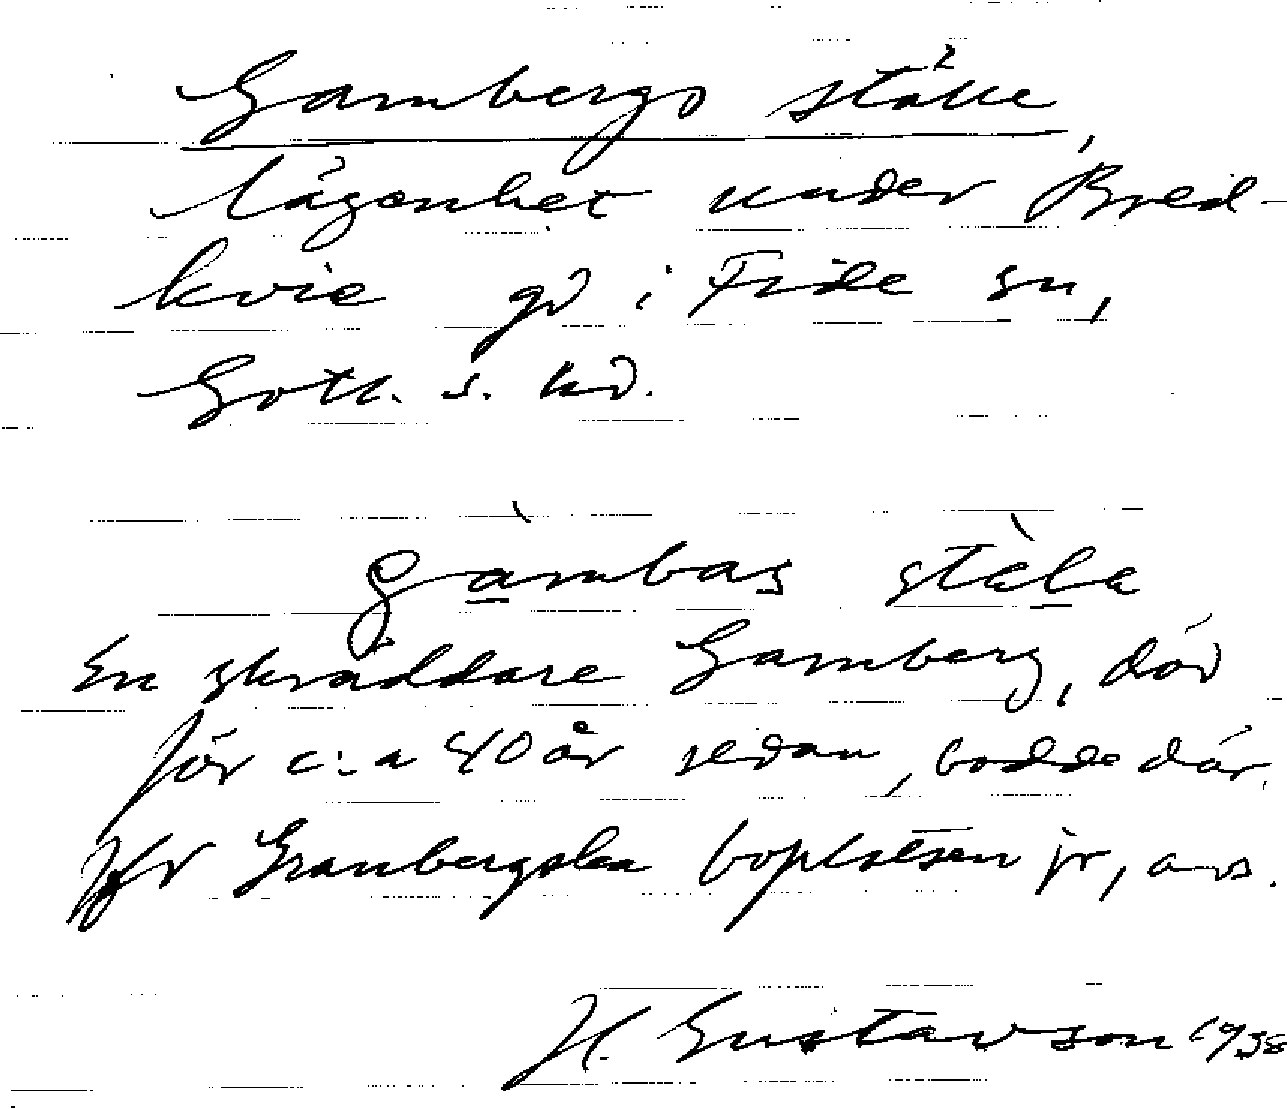 Gambergs ställe,
lägenhet under Bred-
kvie gd i Fide sn,
Gotl. s. hd.
gàmbas stàla
En skräddare Gamberg, död
för c:a 40 år sedan, bodde där.
Jfr Granbergska boplatsen jr, avs.
H. Gustavson 1938